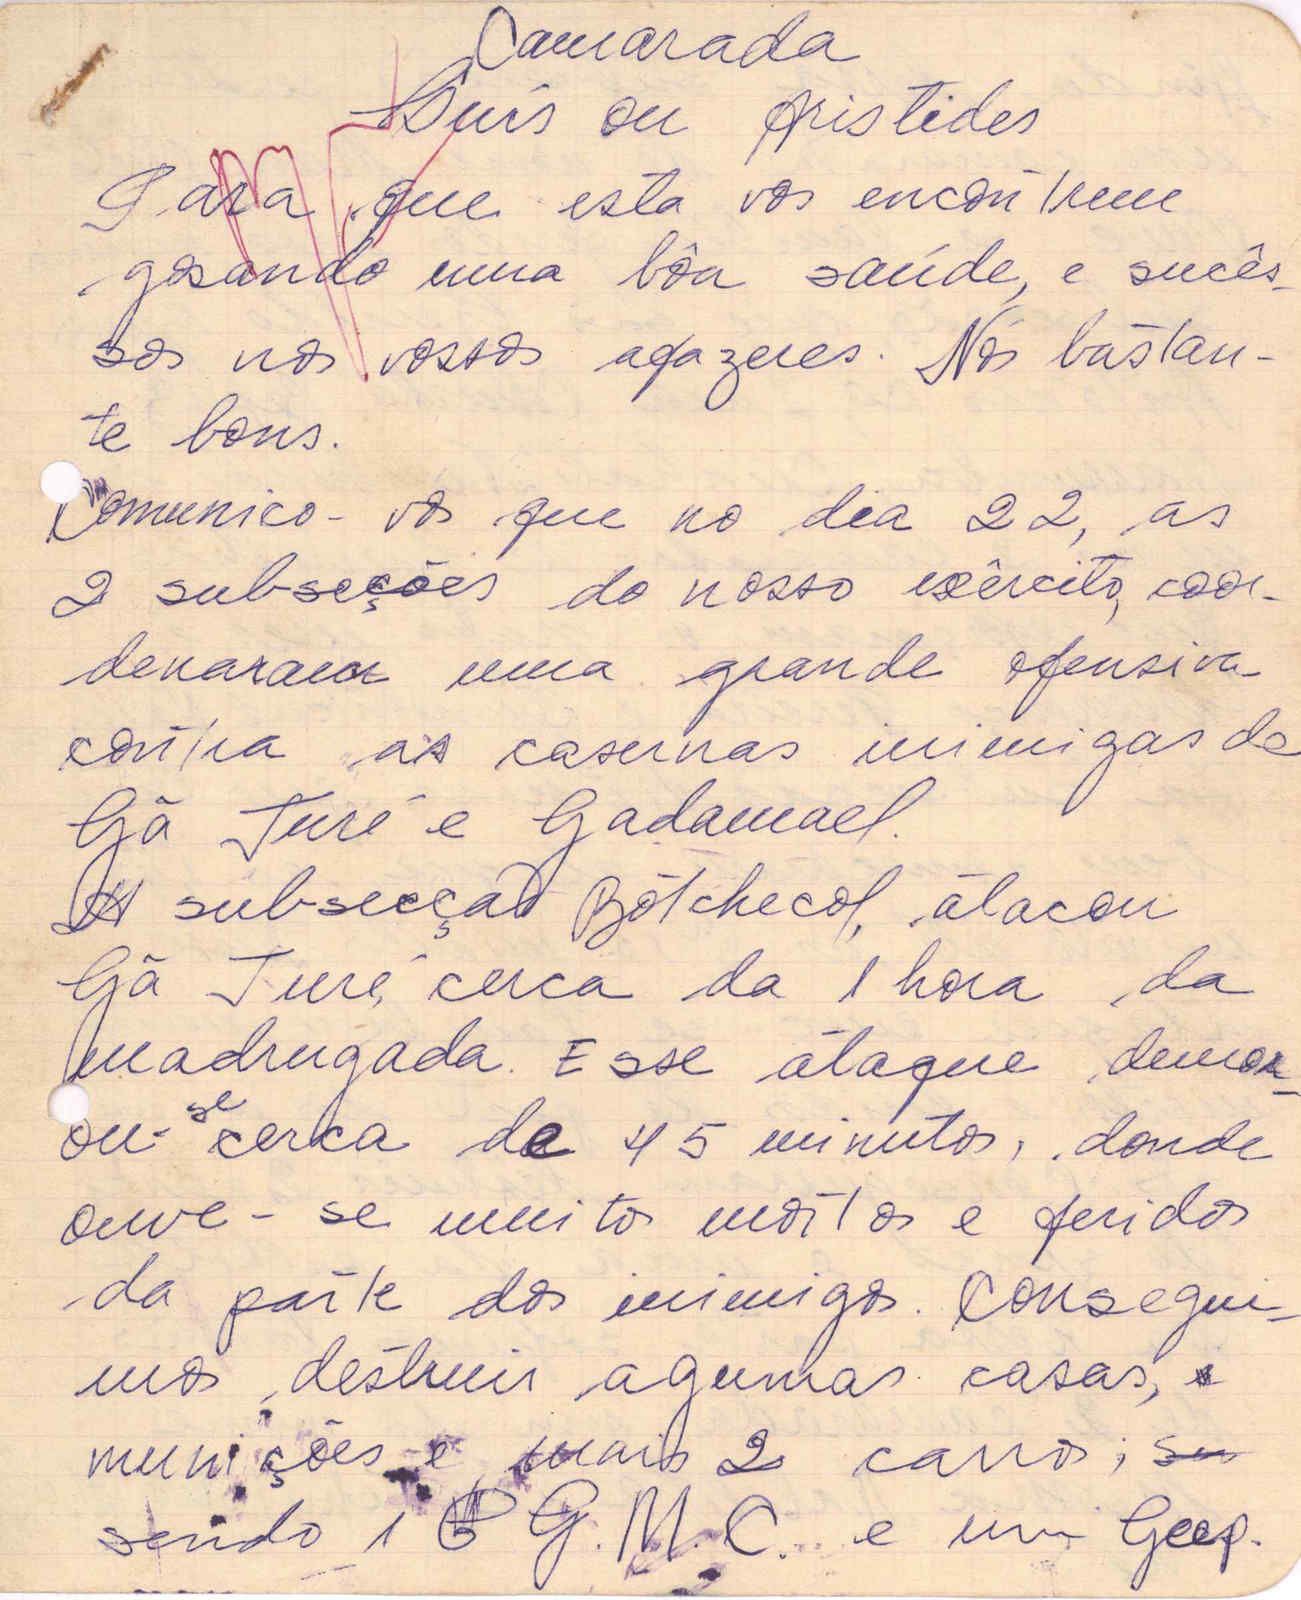 Camarada
Luís ou Aristides
Para que esta vos encontrem
gosando uma bôa saúde, e sucês-
sos nos vossos afazeres. Nós bastan-
te bons.
Comunico-vos que no dia 22, as
2 sub-seções do nosso exército, coor-
denaram uma grande ofensiva
contra as casernas inimigas de
Gã Turé e Gadamael.
A sub-secção Bótchecol, atacou
Gã Turé, cerca da 1 hora da
madrugada. Esse ataque demor-
ou-se cerca de 45 minutos, donde
ouve-se muitos mortos e feridos
da parte dos inimigos. Consegui-
mos destruir agumas casas,
munições e mais 2 carros; su
sendo 1 G.M.C. e um Geep.